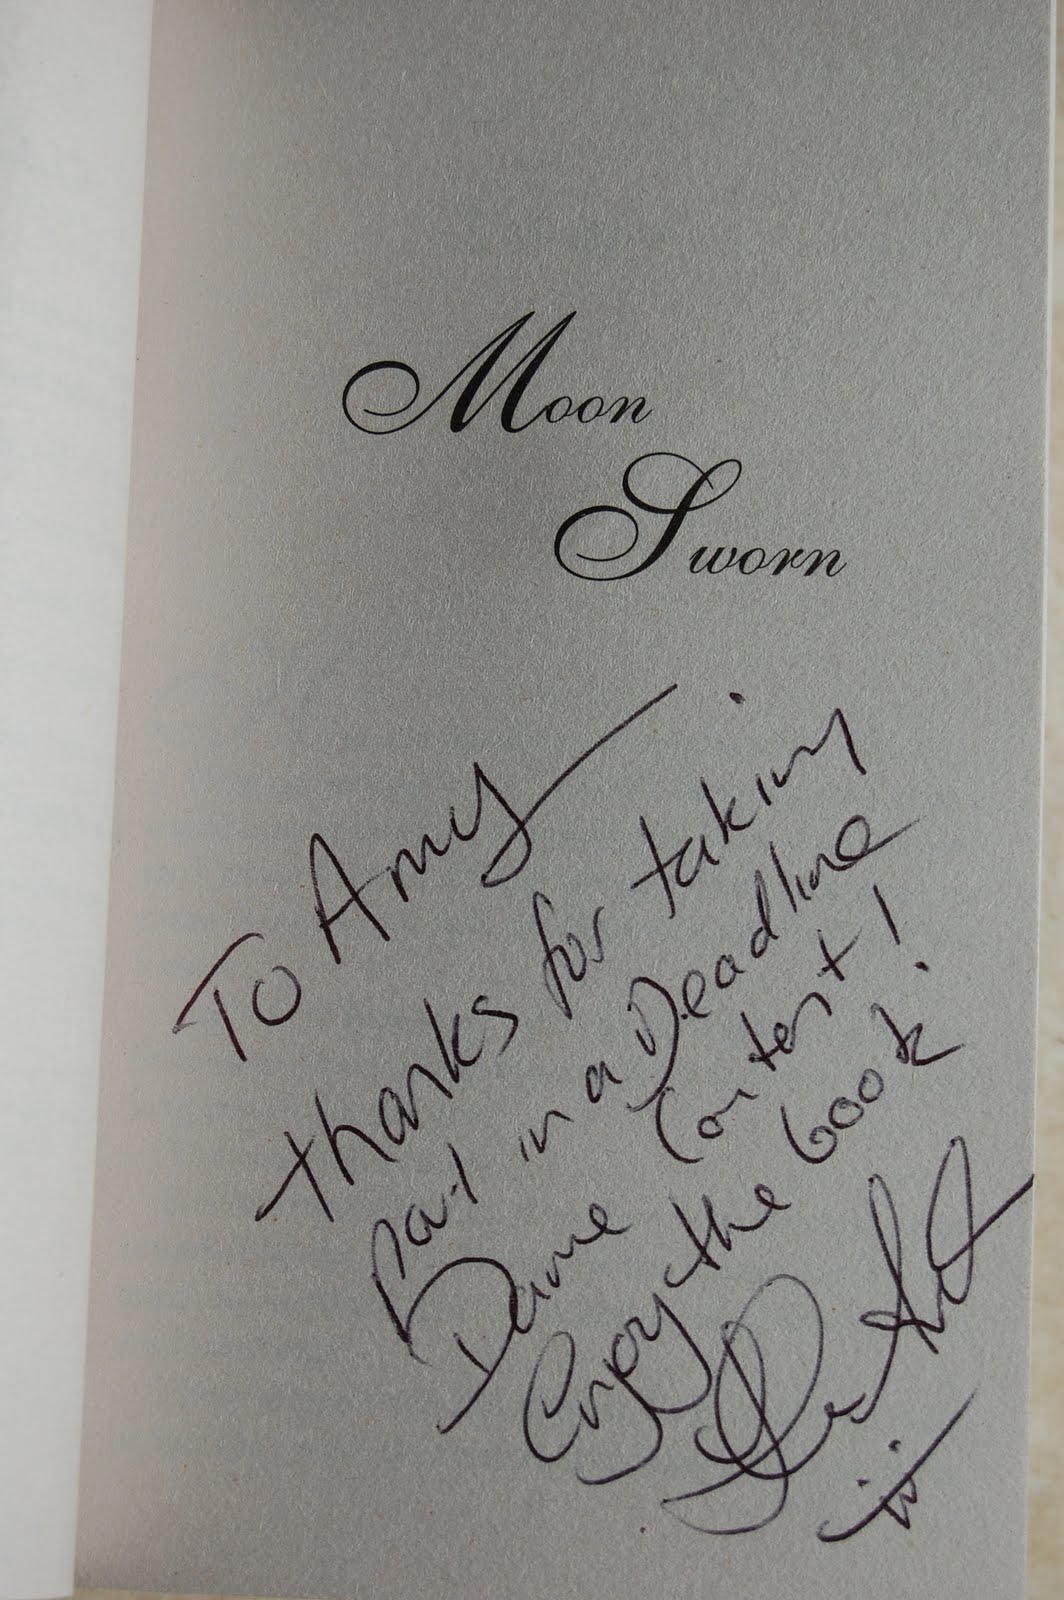 Moon
Sworn
To Amy
thanks for taking
part in a Deadline
Dame Contest!
Enjoy the book